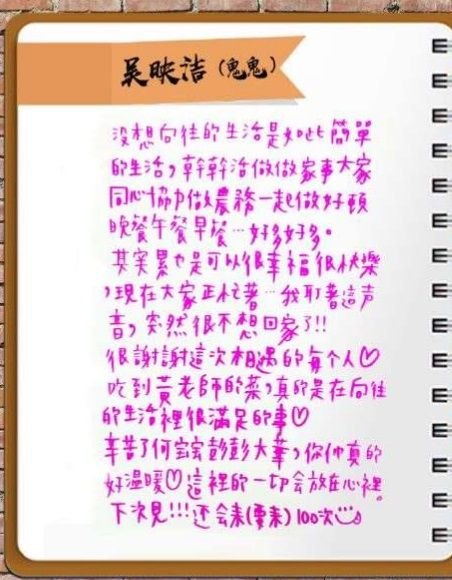 吴映洁（鬼鬼）
没想向往的生活是如此簡單
的生活，幹幹活做做家事大家
同心協力做農務一起做好頓
晚餐午餐早餐…好多好多。
其实累也是可以很幸福很快樂
，現在大家正忙著…我盯著這声
音，突然很不想回家了!!
很謝謝這次相遇的每个人♡
吃到黃老師的菜，真的是在向往
的生活裡很滿足的事♡
辛苦了何宝宝彭彭大華，你们真的
好溫暖♡這裡的一切会放在心裡。
下次見!!!还会来(要来)100次